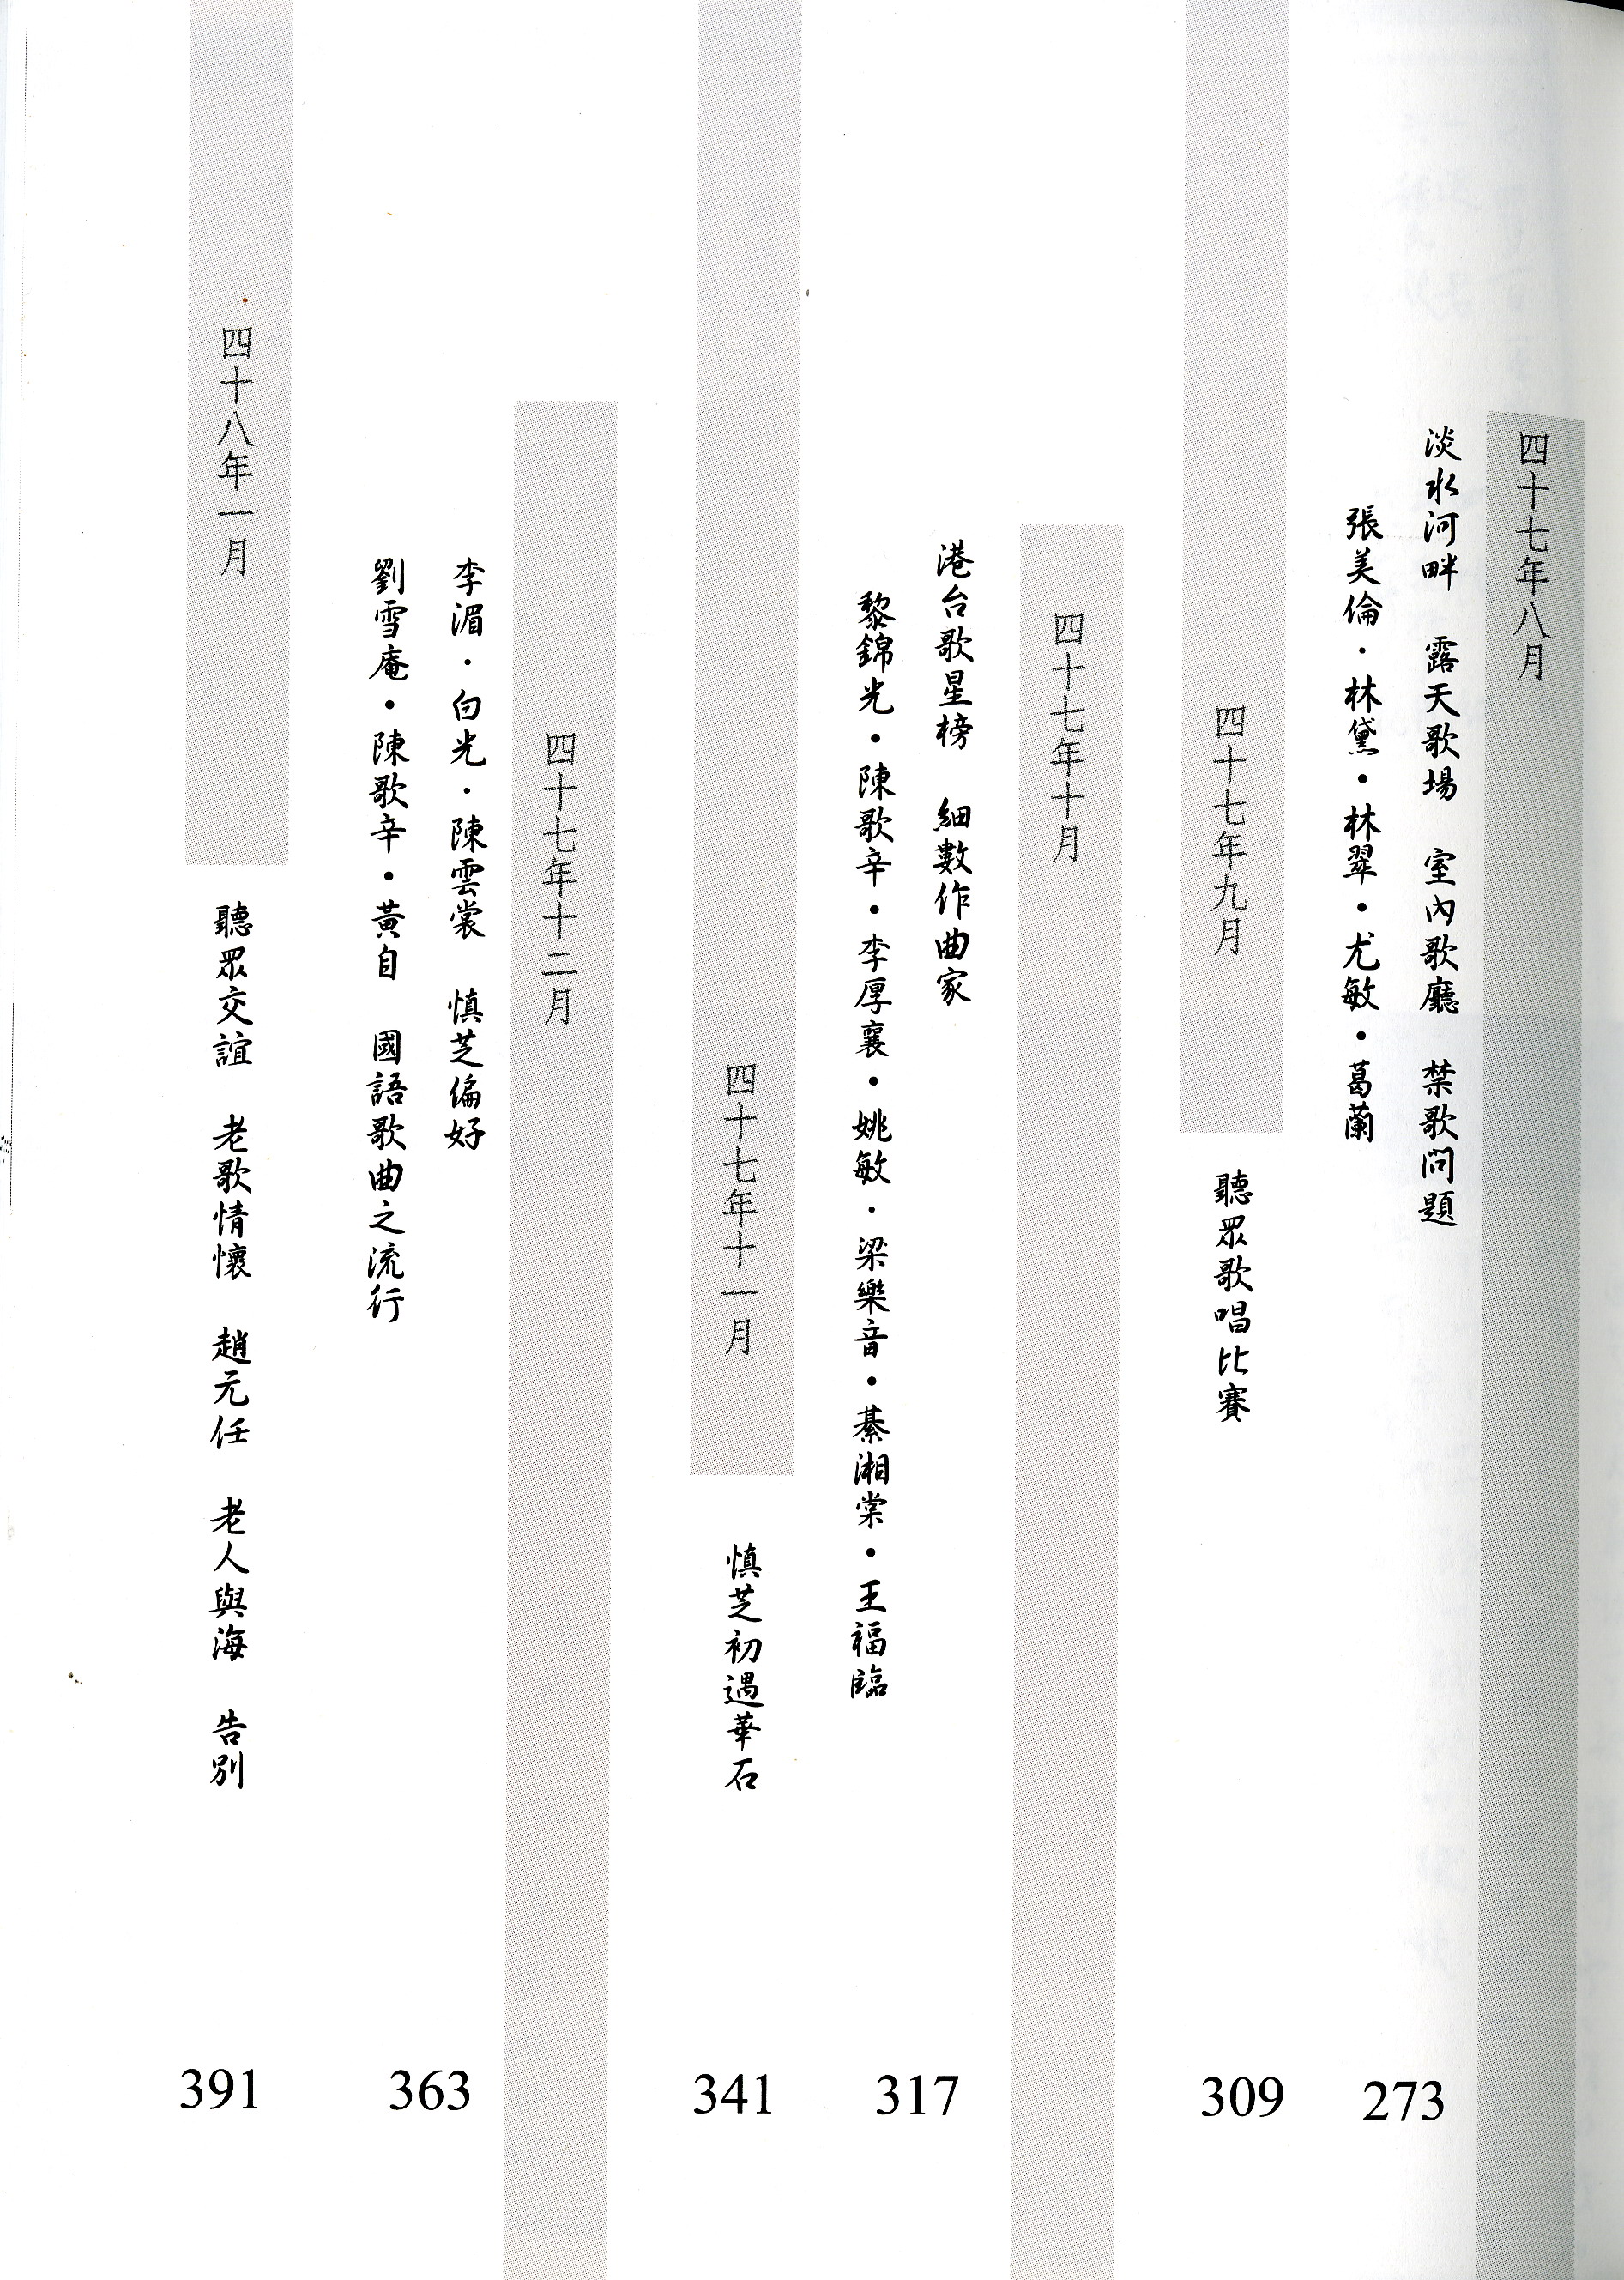 四十七年八月
淡水河畔　露天歌場　室內歌廳　禁歌問題
張美倫・林黛・林翠・尤敏・葛蘭
273
四十七年九月
聽眾歌唱比賽
309
四十七年十月
港台歌星榜　細數作曲家
黎錦光・陳歌辛・李厚襄・姚敏・梁樂音・綦湘棠・王福臨
317
四十七年十一月
慎芝初遇華石
341
四十七年十二月
李湄・白光・陳雲裳　慎芝偏好
劉雪庵・陳歌辛・黃自　國語歌曲之流行
363
四十八年一月
聽眾交誼　老歌情懷　趙元任　老人與海　告別
391